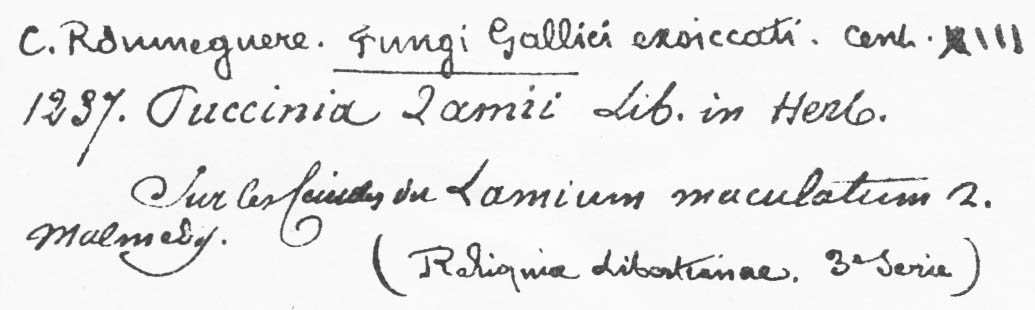 C. Roumeguere. Fungi Gallici exsiccati. Cent. XIII
1237. Puccinia Lamii Lib. in Herb.
Sur les du Lamium maculatum L.
Malmedy.
(Reliquiae Libertianae. 3e Serie)